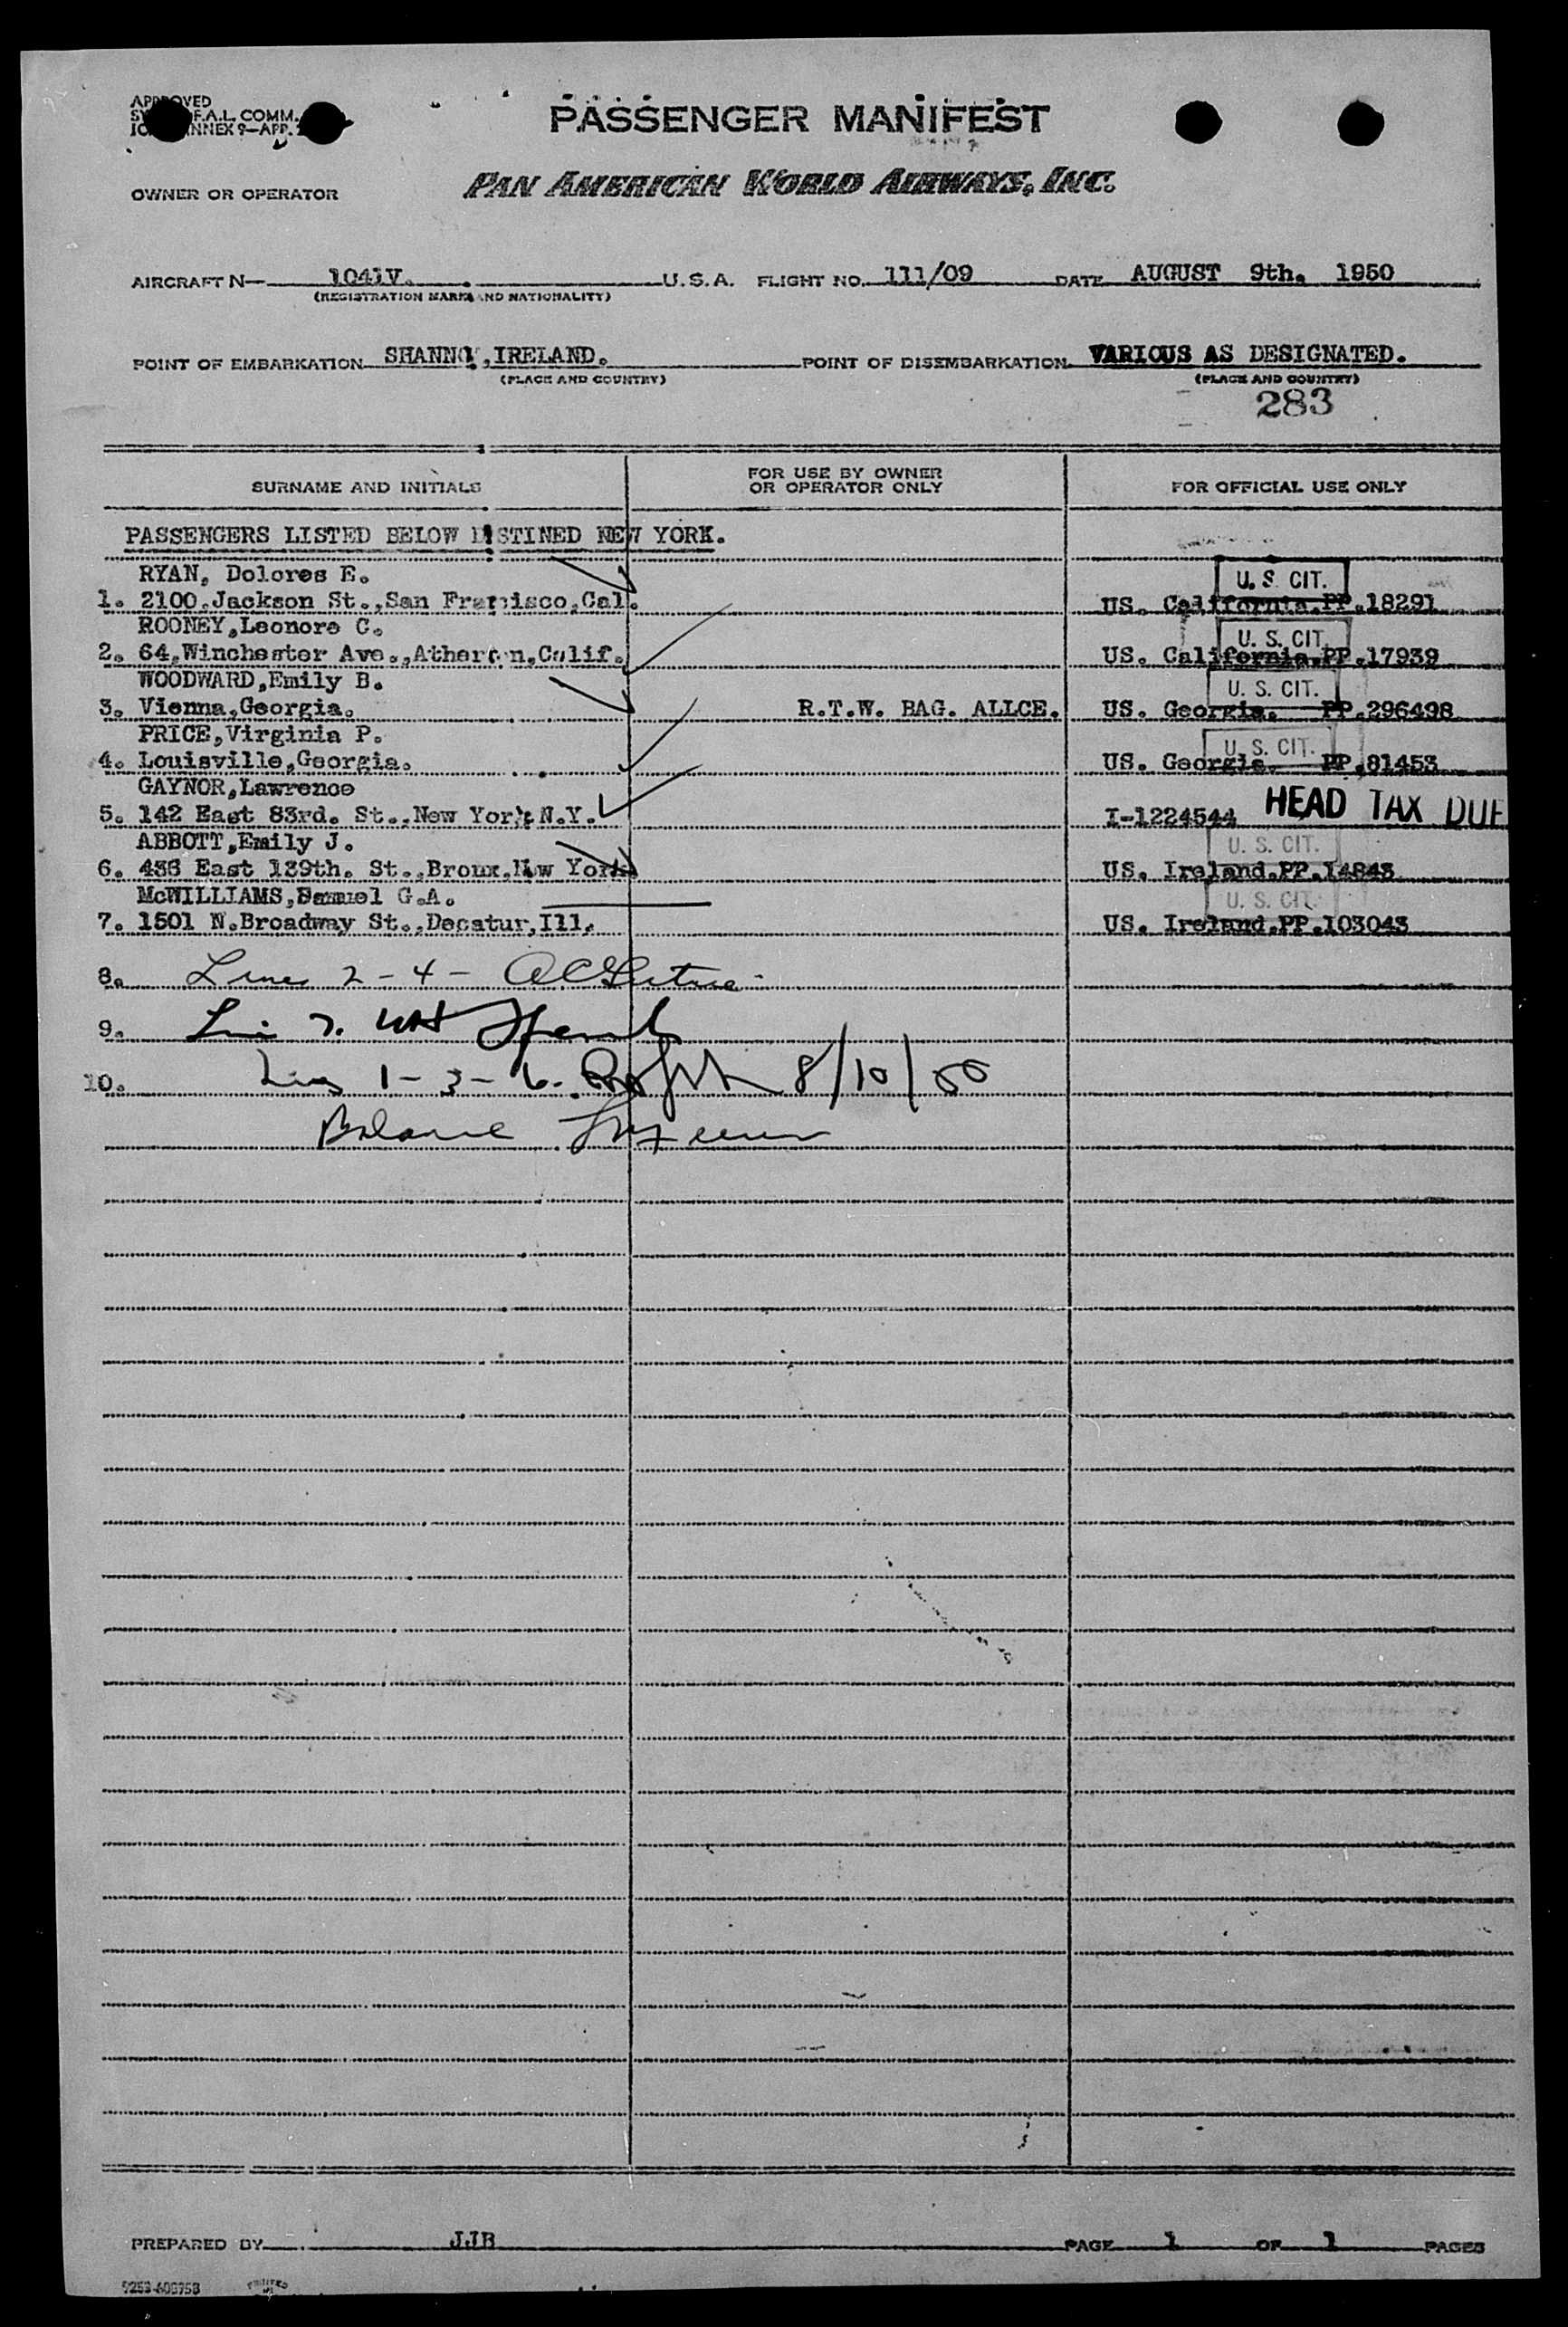 PASSENGER MANIFEST
OWNER OR OPERATOR PAN AMERICAN WORLD AIRWAYS, INC.
AIRCRAFT N— 1041V. U.S.A. FLIGHT NO. 111/09 DATE AUGUST 9th. 1950
(REGISTRATION MARKS AND NATIONALITY)
POINT OF EMBARKATION SHANNON, IRELAND. POINT OF DISEMBARKATION VARIOUS AS DESIGNATED.
(PLACE AND COUNTRY) (PLACE AND COUNTRY)
283
SURNAME AND INITIALS FOR USE BY OWNER OR OPERATOR ONLY FOR OFFICIAL USE ONLY
PASSENGERS LISTED BELOW DESTINED NEW YORK.
RYAN, Dolores E. U. S. CIT.
1. 2100,Jackson St.,San Francisco,Cal. US. California.PP.18291
ROONEY,Leonore C. U. S. CIT.
2. 64,Winchester Ave.,Atherton,Calif. US. California.PP.17939
WOODWARD,Emily B. U. S. CIT.
3. Vienna,Georgia. R.T.W. BAG. ALLCE. US. Georgia. PP.296498
PRICE,Virginia P. U. S. CIT.
4. Louisville,Georgia. US. Georgia. PP.81453
GAYNOR,Lawrence
5. 142 East 83rd. St.,New York N.Y. I-1224544 HEAD TAX DUE
ABBOTT,Emily J. U. S. CIT.
6. 436 East 139th. St.,Bronx.New York US. Ireland.PP.14843
McWILLIAMS,Samuel G.A. U. S. CIT.
7. 1501 N.Broadway St.,Decatur,Ill. US. Ireland.PP.103043
8. Lines 2-4-
9.
10. 1-3-6. 8/10/50
Balance
PREPARED BY JJB PAGE 1 OF 1 PAGES